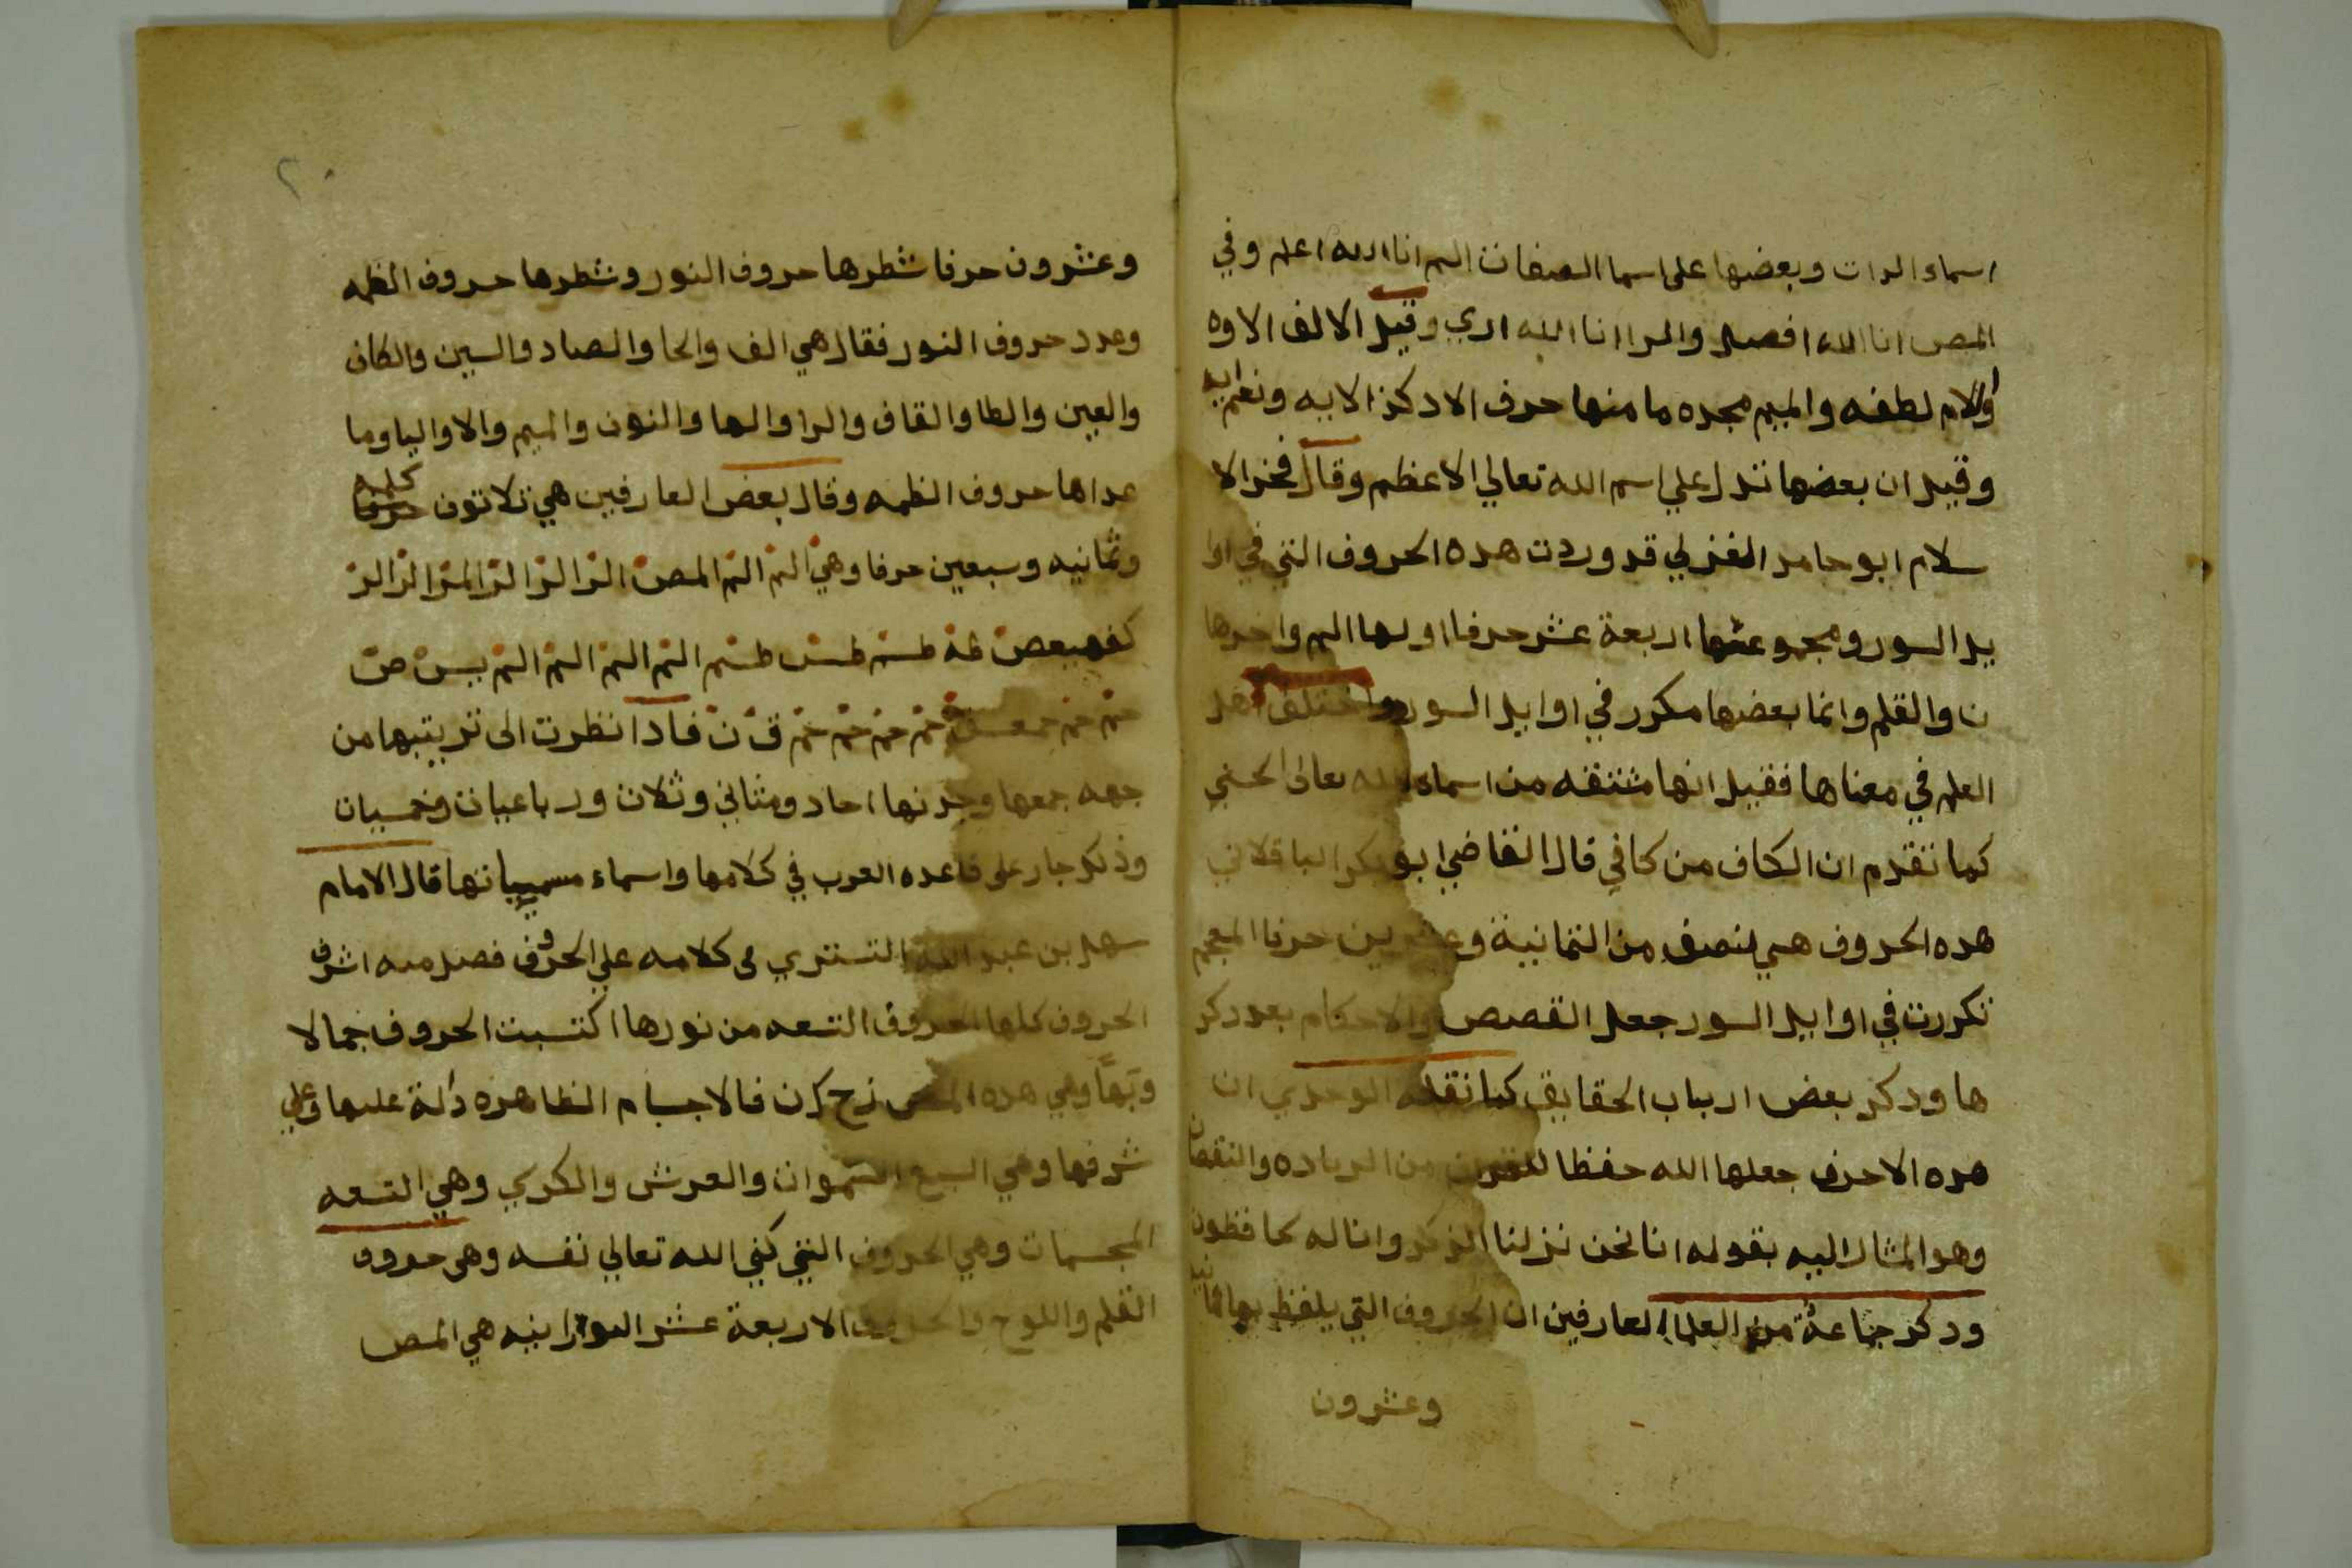 اسماء الدات وبعضها على اسما الصفات الم انا الله اعلم وفي
المص انا الله افصل والمر انا الله اري وقيل الالف الاوه
والام لطفه والميم مجده ما منها حرف الا دكر الايه ونعم
وقيل ان بعضها تدل علي اسم الله تعالي الاعظم وقال فخر الا
سلام ابو حامد الغزلي قد وردت هده الحروف التي في اوا
يل السور ومجموعتها اربعة عشر حرفا اولها الم واخرها
ن والقلم وانما بعضها مكرر في اوايل السور واختلف اهل
العلم في معناها فقيل انها مشتقه من اسماء الله تعالى الحسني
كما تقدم ان الكاف من كافي قال القاضي ابو بكر الباقلاني
هده الحروف هي لنصف من الثمانية وعشرين حرفا المعجم
تكررت في اوايل السور جعل القصص والاحكام بعد دكر
ها ودكر بعض ارباب الحقايق كما نقله الوحدي ان
هده الاحرف جعلها الله حفظا للقران من الزياده والنقصان
وهو المشار اليه بقوله انا نحن نزلنا الذكر وانا له لحافظون
ودكر جماعة من العلما العارفين ان الحروف التي يلفظ بها ثمانيه
وعشرون
٢٠
وعشرون حرفا شطرها حروف النور وشطرها حروف الظمه
وعدد حروف النور فقال هي الف والحا والصاد والسين والكاف
والعين والطا والقاف والرا والها والنون والميم والا واليا وما
عداها حروف الظمه وقال بعض العارفين هي ثلاثون حرفا كلمه
وثمانيه وسبعين حرفا وهي الم الم المص الر الر الر المر الر الر
كهيعص طه طسم طس طسم الم الم الم الم يس ص
حم حم حمعسق حم حم حم حم ق ن فادا نظرت الى ترتيبها من
جهه جمعها وجدتها احاد ومثاني وثلاث ورباعيات وخمسيات
وذلك جار على قاعده العرب في كلامها واسماء مسمياتها قال الامام
سهل بن عبد الله التستري في كلامه علي الحروف فصل منه اشرف
الحروف كلها الحروف التسعه من نورها اكتسبت الحروف جمالا
وبهاً وهي هده المص زح كرن فالاجسام الظاهره دالة عليها وعلي
شرفها وهي السبع السموات والعرش والكرسي وهي التسعه
المجسمات وهي الحروف التي كني الله تعالي نفسه وهي حروف
القلم واللوح والحروف الاربعة عشر النورانيه هي المص